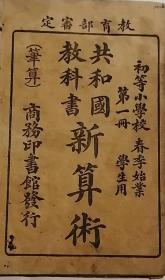 教育部審定
初等小學校 春季始業
第一冊 學生用
共和國
教科書
新算術
(筆算)
商務印書館發行